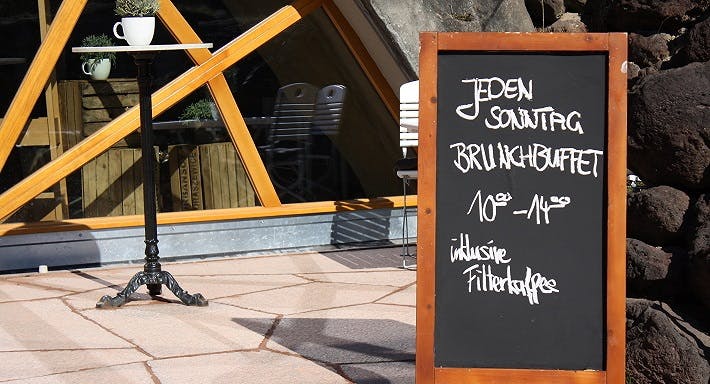 JEDEN
SONNTAG
BRUNCHBUFFET
10⁰⁰ - 14⁰⁰
inklusive
Filterkaffee